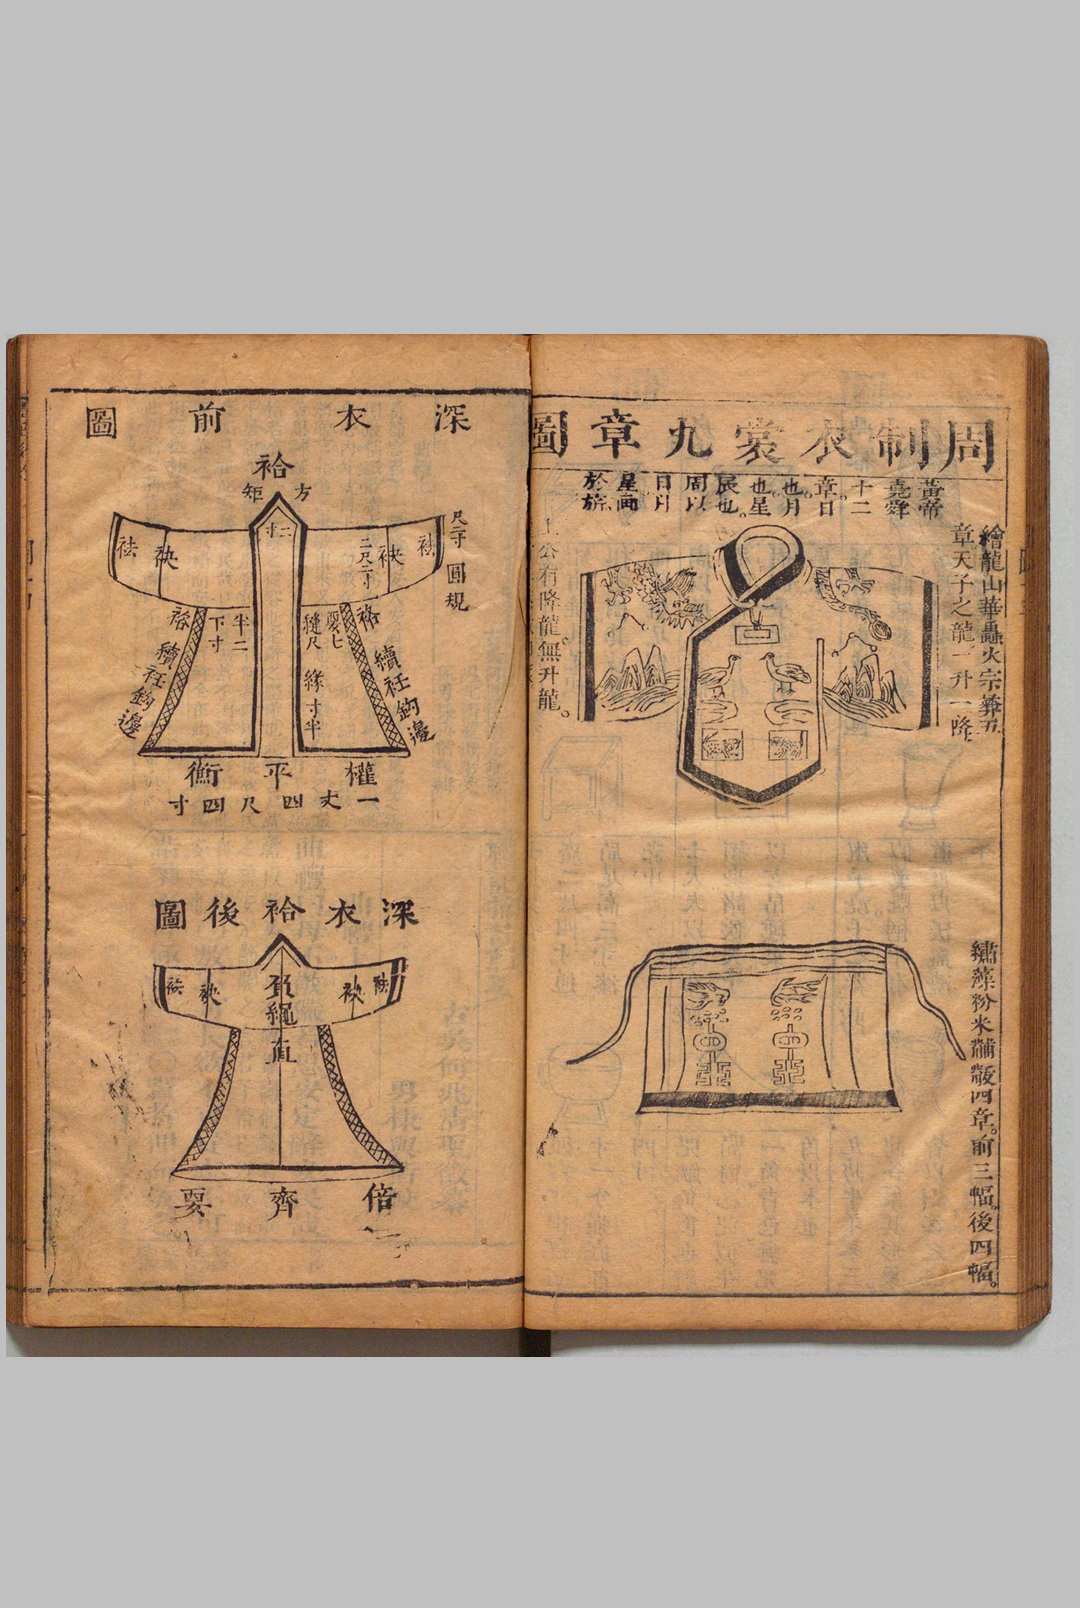 周制衣裳九章圖
黃帝
堯舜
十二
章日
也月
也星
辰也。
周以
日月
星畫
於旂。
繪龍山華蟲火宗彝五
章天子之龍一升一降
上公有降龍無升龍。
繡藻粉米黼黻四章。前三幅。後四幅。
深衣前圖
袷
方
矩
二寸
尺二寸
圓規
袪
袂
二尺二寸
袂
袪
袼
要七
縫尺
半二
下寸
袼
續衽鈎邊
緣寸半
續衽鈎邊
權平衡
一丈四尺四寸
深衣袷後圖
袪
袂
負繩直
袂
袪
倍齊要